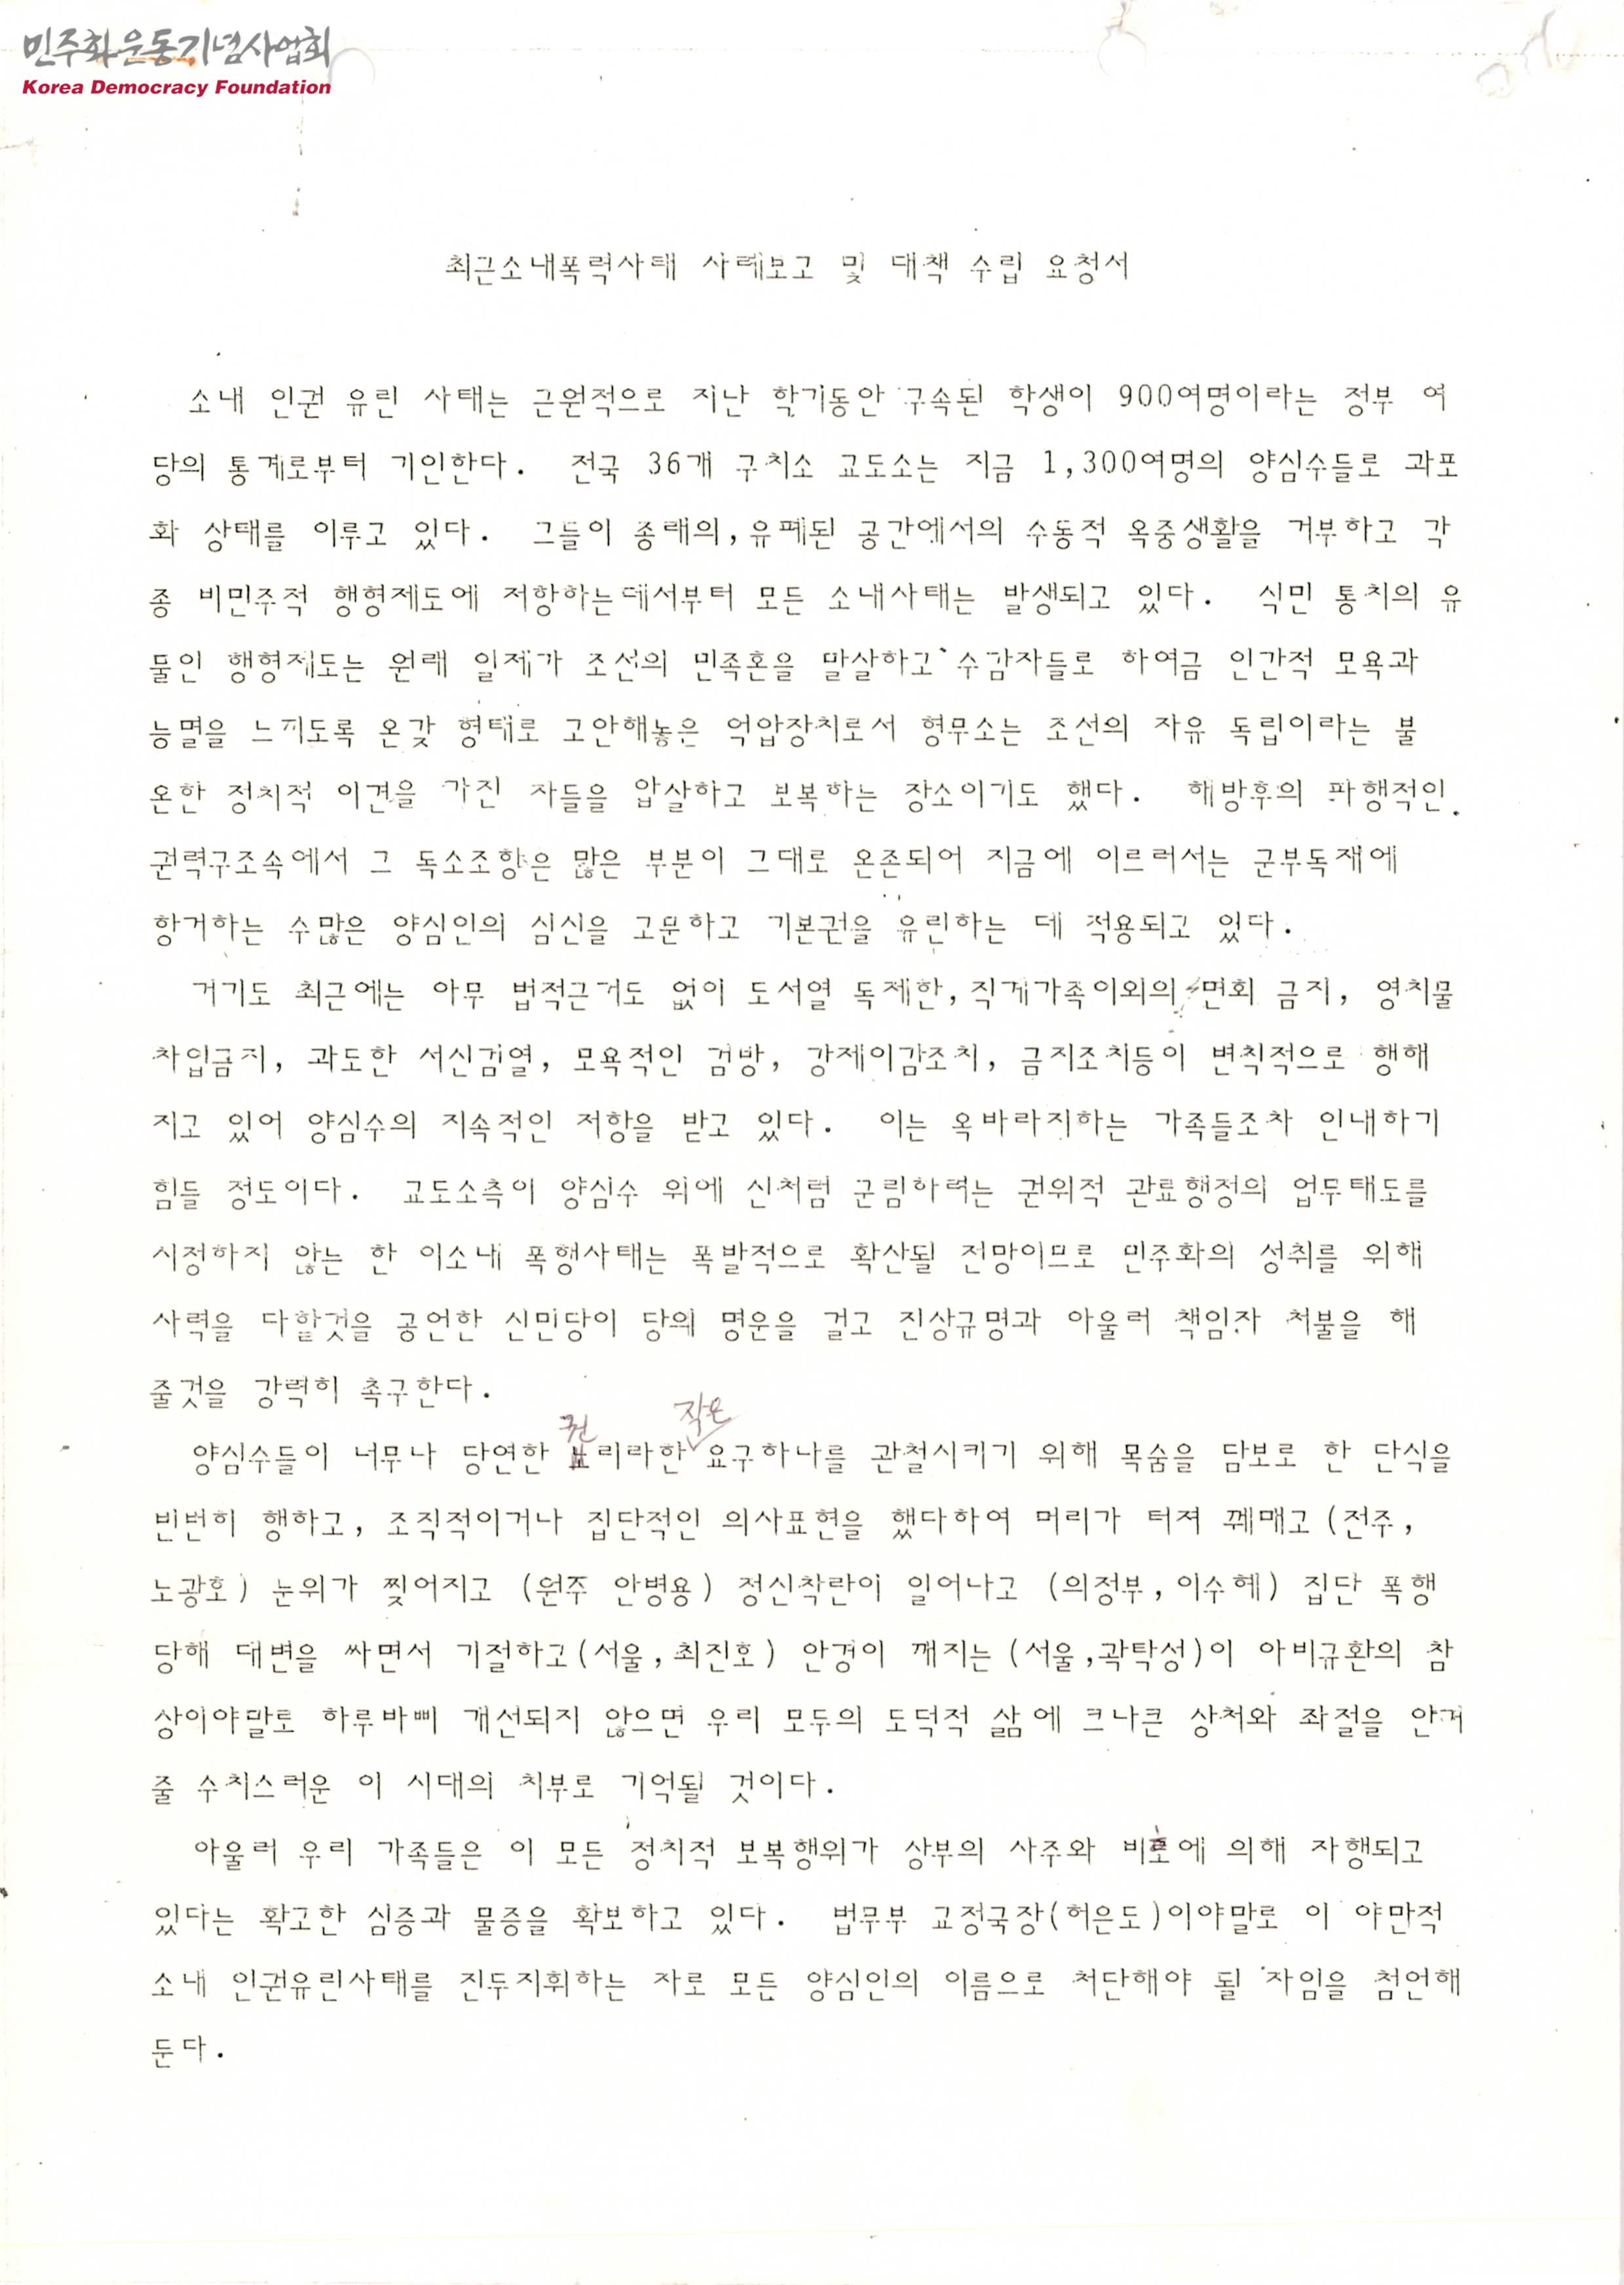 민주화운동기념사업회
Korea Democracy Foundation
최근소내폭력사태 사례보고 및 대책 수립 요청서
소내 인권 유린 사태는 근원적으로 지난 학기동안 구속된 학생이 900여명이라는 정부 여
당의 통계로부터 기인한다. 전국 36개 구치소 교도소는 지금 1,300여명의 양심수들로 과포
화 상태를 이루고 있다. 그들이 종래의, 유폐된 공간에서의 수동적 옥중생활을 거부하고 각
종 비민주적 행형제도에 저항하는데서부터 모든 소내사태는 발생되고 있다. 식민 통치의 유
물인 행형제도는 원래 일제가 조선의 민족혼을 말살하고 수감자들로 하여금 인간적 모욕과
능멸을 느끼도록 온갖 형태로 고안해놓은 억압장치로서 형무소는 조선의 자유 독립이라는 불
온한 정치적 이견을 가진 자들을 압살하고 보복하는 장소이기도 했다. 해방후의 파행적인
권력구조속에서 그 독소조항은 많은 부분이 그대로 온존되어 지금에 이르러서는 군부독재에
항거하는 수많은 양심인의 심신을 고문하고 기본권을 유린하는 데 적용되고 있다.
거기도 최근에는 아무 법적근거도 없이 도서열 독제한, 직계가족이외의 면회 금지, 영치물
차입금지, 과도한 서신검열, 모욕적인 검방, 강제이감조치, 금지조치등이 변칙적으로 행해
지고 있어 양심수의 지속적인 저항을 받고 있다. 이는 옥바라지하는 가족들조차 인내하기
힘들 정도이다. 교도소측이 양심수 위에 신처럼 군림하려는 권위적 관료행정의 업무태도를
시정하지 않는 한 이소내 폭행사태는 폭발적으로 확산될 전망이므로 민주화의 성취를 위해
사력을 다할것을 공언한 신민당이 당의 명운을 걸고 진상규명과 아울러 책임자 처불을 해
줄것을 강력히 촉구한다.
양심수들이 너무나 당연한 권리라한 작은 요구하나를 관철시키기 위해 목숨을 담보로 한 단식을
빈번히 행하고, 조직적이거나 집단적인 의사표현을 했다하여 머리가 터져 꿰매고 (전주,
노광호) 눈위가 찢어지고 (원주 안병용) 정신착란이 일어나고 (의정부, 이수혜) 집단 폭행
당해 대변을 싸면서 기절하고(서울, 최진호) 안경이 깨지는 (서울,곽탁성)이 아비규환의 참
상이야말로 하루바삐 개선되지 않으면 우리 모두의 도덕적 삶에 크나큰 상처와 좌절을 안겨
줄 수치스러운 이 시대의 치부로 기억될 것이다.
아울러 우리 가족들은 이 모든 정치적 보복행위가 상부의 사주와 비호에 의해 자행되고
있다는 확고한 심증과 물증을 확보하고 있다. 법무부 교정국장(허은도)이야말로 이 야만적
소내 인권유린사태를 진두지휘하는 자로 모든 양심인의 이름으로 처단해야 될 자임을 첨언해
둔다.